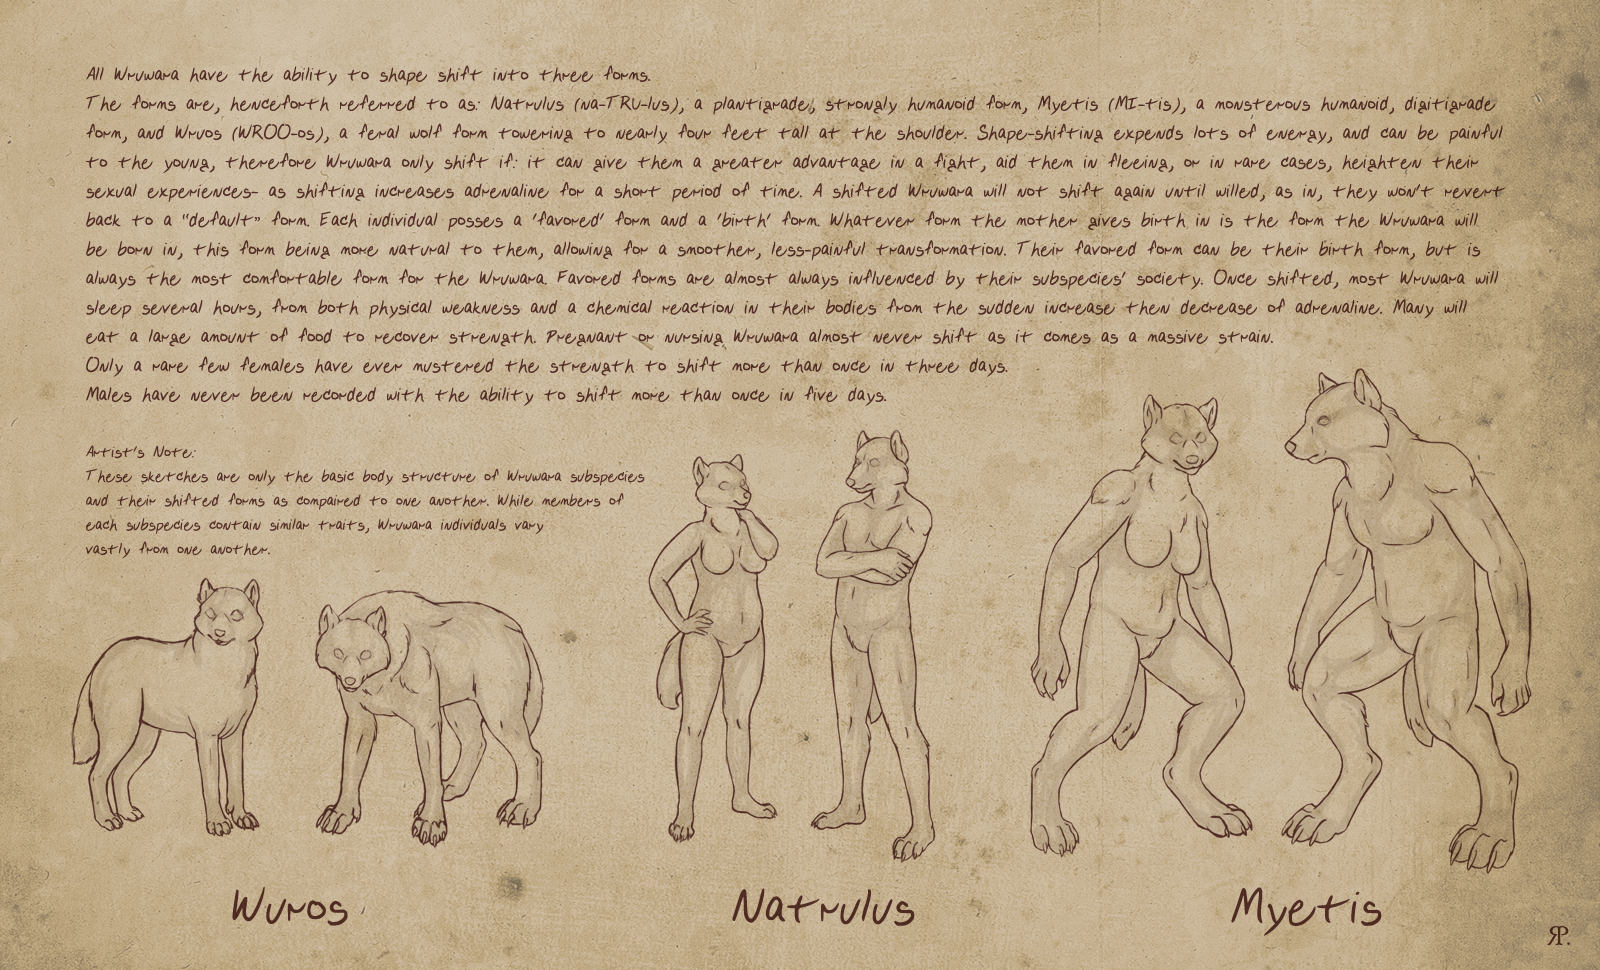 All Wruwara have the ability to shape shift into three forms.
The forms are, henceforth referred to as: Natrulus (na-TRU-lus), a plantigrade, strongly humanoid form, Myetis (MI-tis), a monsterous humanoid, digitigrade
form, and Wruos (WROO-os), a feral wolf form towering to nearly four feet tall at the shoulder. Shape-shifting expends lots of energy, and can be painful
to the young, therefore Wruwara only shift if: it can give them a greater advantage in a fight, aid them in fleeing, or in rare cases, heighten their
sexual experiences- as shifting increases adrenaline for a short period of time. A shifted Wruwara will not shift again until willed, as in, they won't revert
back to a "default" form. Each individual posses a 'favored' form and a 'birth' form. Whatever form the mother gives birth in is the form the Wruwara will
be born in, this form being more natural to them, allowing for a smoother, less-painful transformation. Their favored form can be their birth form, but is
always the most comfortable form for the Wruwara. Favored forms are almost always influenced by their subspecies' society. Once shifted, most Wruwara will
sleep several hours, from both physical weakness and a chemical reaction in their bodies from the sudden increase then decrease of adrenaline. Many will
eat a large amount of food to recover strength. Pregnant or nursing Wruwara almost never shift as it comes as a massive strain.
Only a rare few females have ever mustered the strength to shift more than once in three days.
Males have never been recorded with the ability to shift more than once in five days.
Artist's Note:
These sketches are only the basic body structure of Wruwara subspecies
and their shifted forms as compaired to one another. While members of
each subspecies contain similar traits, Wruwara individuals vary
vastly from one another.
Wuros
Natrulus
Myetis
RP.